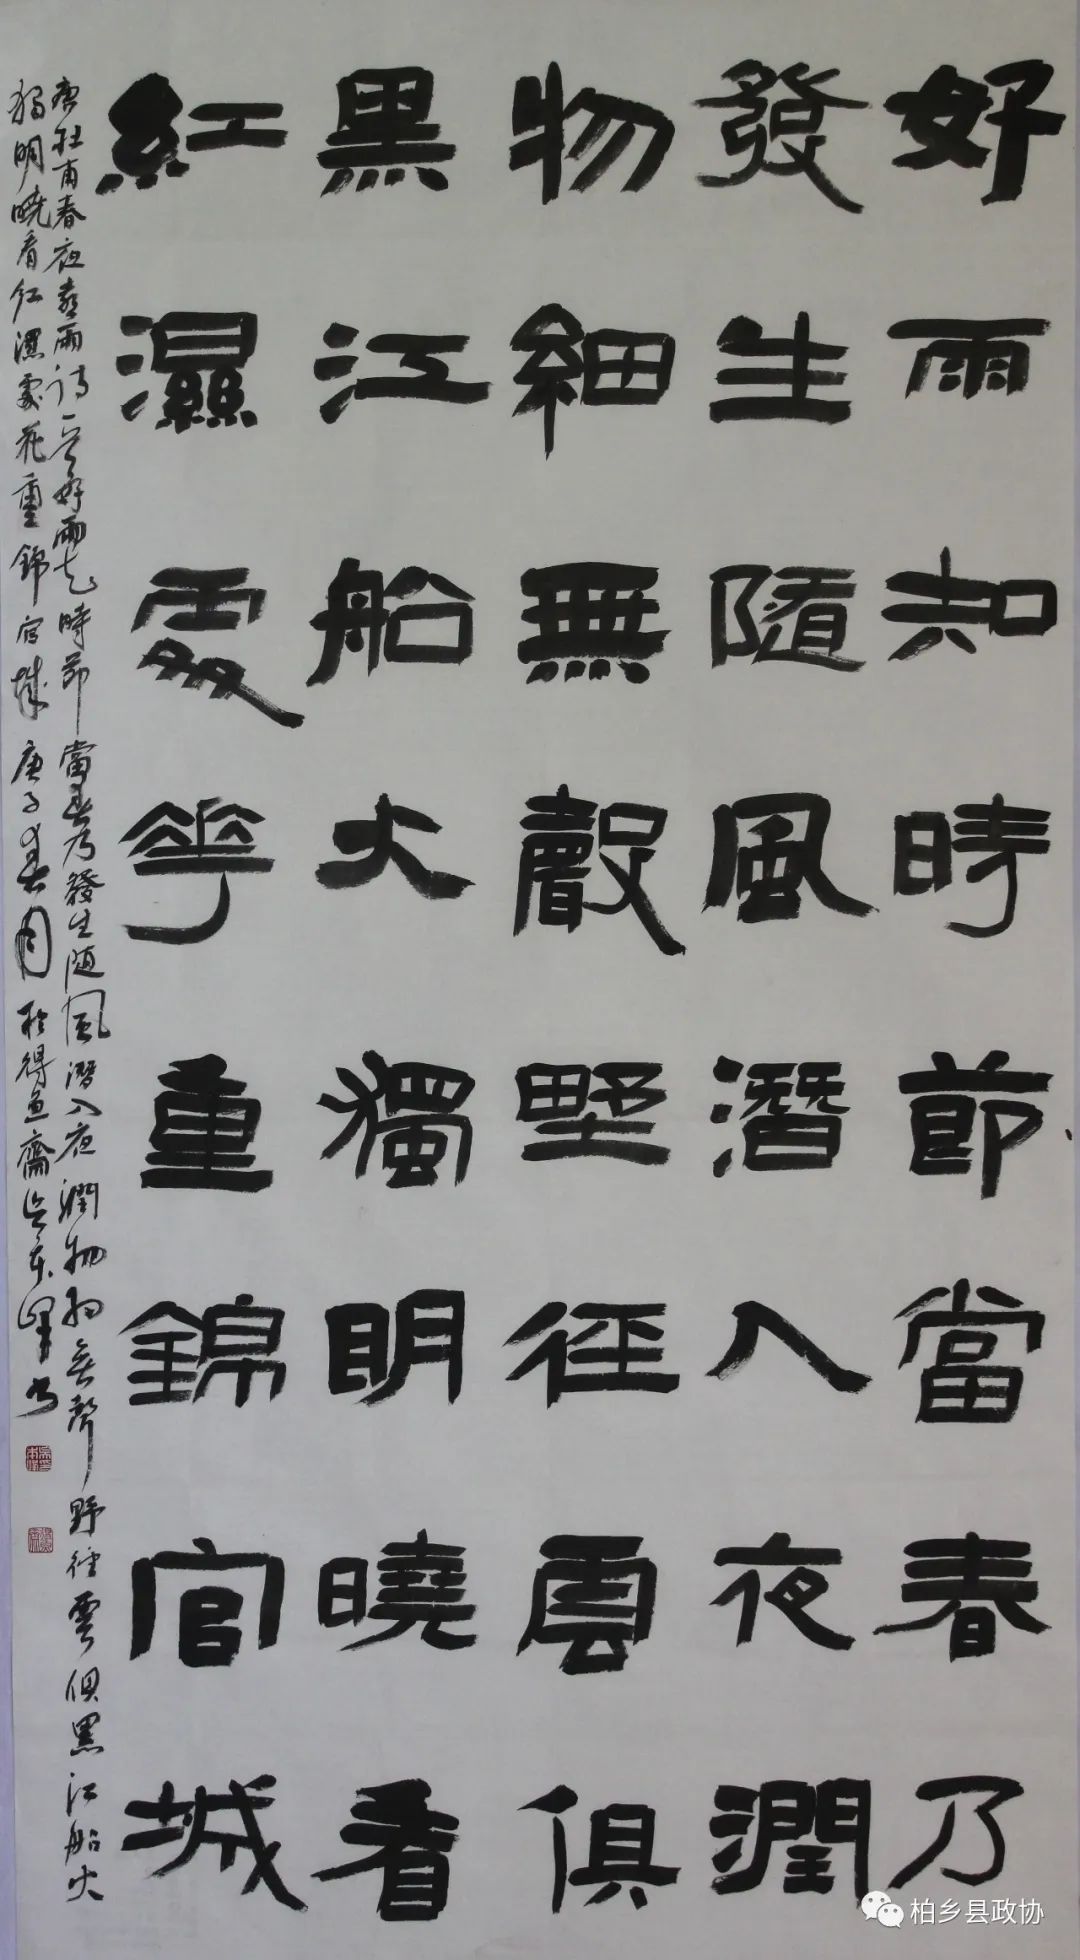 好雨知時節當春乃
發生隨風潛入夜潤
物細無聲野徑雲俱
黑江船火獨明曉看
紅濕處花重錦官城
唐杜甫春夜喜雨詩一首好雨知時節當春乃發生随風潛入夜潤物細無聲野徑雲俱黑江船火
獨明曉看紅濕處花重錦官城庚子春月於得魚齋
柏乡县政协